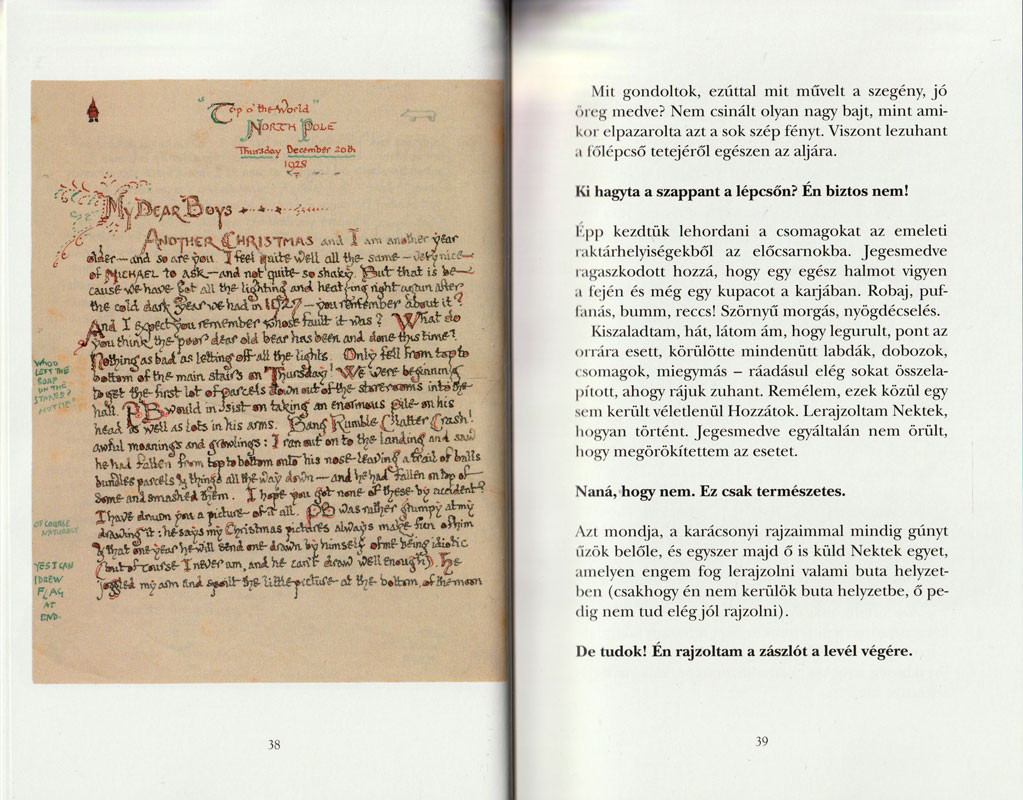 "Top o' the World"
NORTH POLE
Thursday December 20th
1928
MY DEAR BOYS
ANOTHER CHRISTMAS and I am another year
older — and so are you. I feel quite well all the same — very nice
of MICHAEL to ask — and not quite so shaky. But that is be-
cause we have got all the lighting and heating right again after
the cold dark year we had in 1927 — you remember about it?
And I expect you remember whose fault it was? What do
you think the poor dear old bear has been and done this time?
Nothing as bad as letting off all the lights. Only fell from top to
bottom of the main stairs on Thursday! We were beginning
to get the first lot of parcels down out of the storerooms into the
hall. PB would insist on taking an enormous pile on his
head as well as lots in his arms. Bang Rumble Clatter Crash!
awful moanings and growlings: I ran out on to the landing and saw
he had fallen from top to bottom onto his nose leaving a trail of balls
bundles parcels & things all the way down — and he had fallen on top of
some and smashed them. I hope you got none of these by accident?
I have drawn you a picture of it all. PB was rather grumpy at my
drawing it: he says my Christmas pictures always make fun of him
& that one year he will send one drawn by himself of me being idiotic
(but of course I never am, and he can't draw well enough). He
joggled my arm and spoilt the little picture at the bottom, of the moon
WHOO
LEFT THE
SOAP
ON THE
STAIRES?
NOT ME
OF COURSE
NATURALLY
YES I CAN
I DREW
FLAG
AT
END.
38
Mit gondoltok, ezúttal mit művelt a szegény, jó
öreg medve? Nem csinált olyan nagy bajt, mint ami-
kor elpazarolta azt a sok szép fényt. Viszont lezuhant
a főlépcső tetejéről egészen az aljára.
Ki hagyta a szappant a lépcsőn? Én biztos nem!
Épp kezdtük lehordani a csomagokat az emeleti
raktárhelyiségekből az előcsarnokba. Jegesmedve
ragaszkodott hozzá, hogy egy egész halmot vigyen
a fején és még egy kupacot a karjában. Robaj, puf-
fanás, bumm, reccs! Szörnyű morgás, nyögdécselés.
Kiszaladtam, hát, látom ám, hogy legurult, pont az
orrára esett, körülötte mindenütt labdák, dobozok,
csomagok, miegymás – ráadásul elég sokat összela-
pított, ahogy rájuk zuhant. Remélem, ezek közül egy
sem került véletlenül Hozzátok. Lerajzoltam Nektek,
hogyan történt. Jegesmedve egyáltalán nem örült,
hogy megörökítettem az esetet.
Naná, hogy nem. Ez csak természetes.
Azt mondja, a karácsonyi rajzaimmal mindig gúnyt
űzök belőle, és egyszer majd ő is küld Nektek egyet,
amelyen engem fog lerajzolni valami buta helyzet-
ben (csakhogy én nem kerülök buta helyzetbe, ő pe-
dig nem tud elég jól rajzolni).
De tudok! Én rajzoltam a zászlót a levél végére.
39